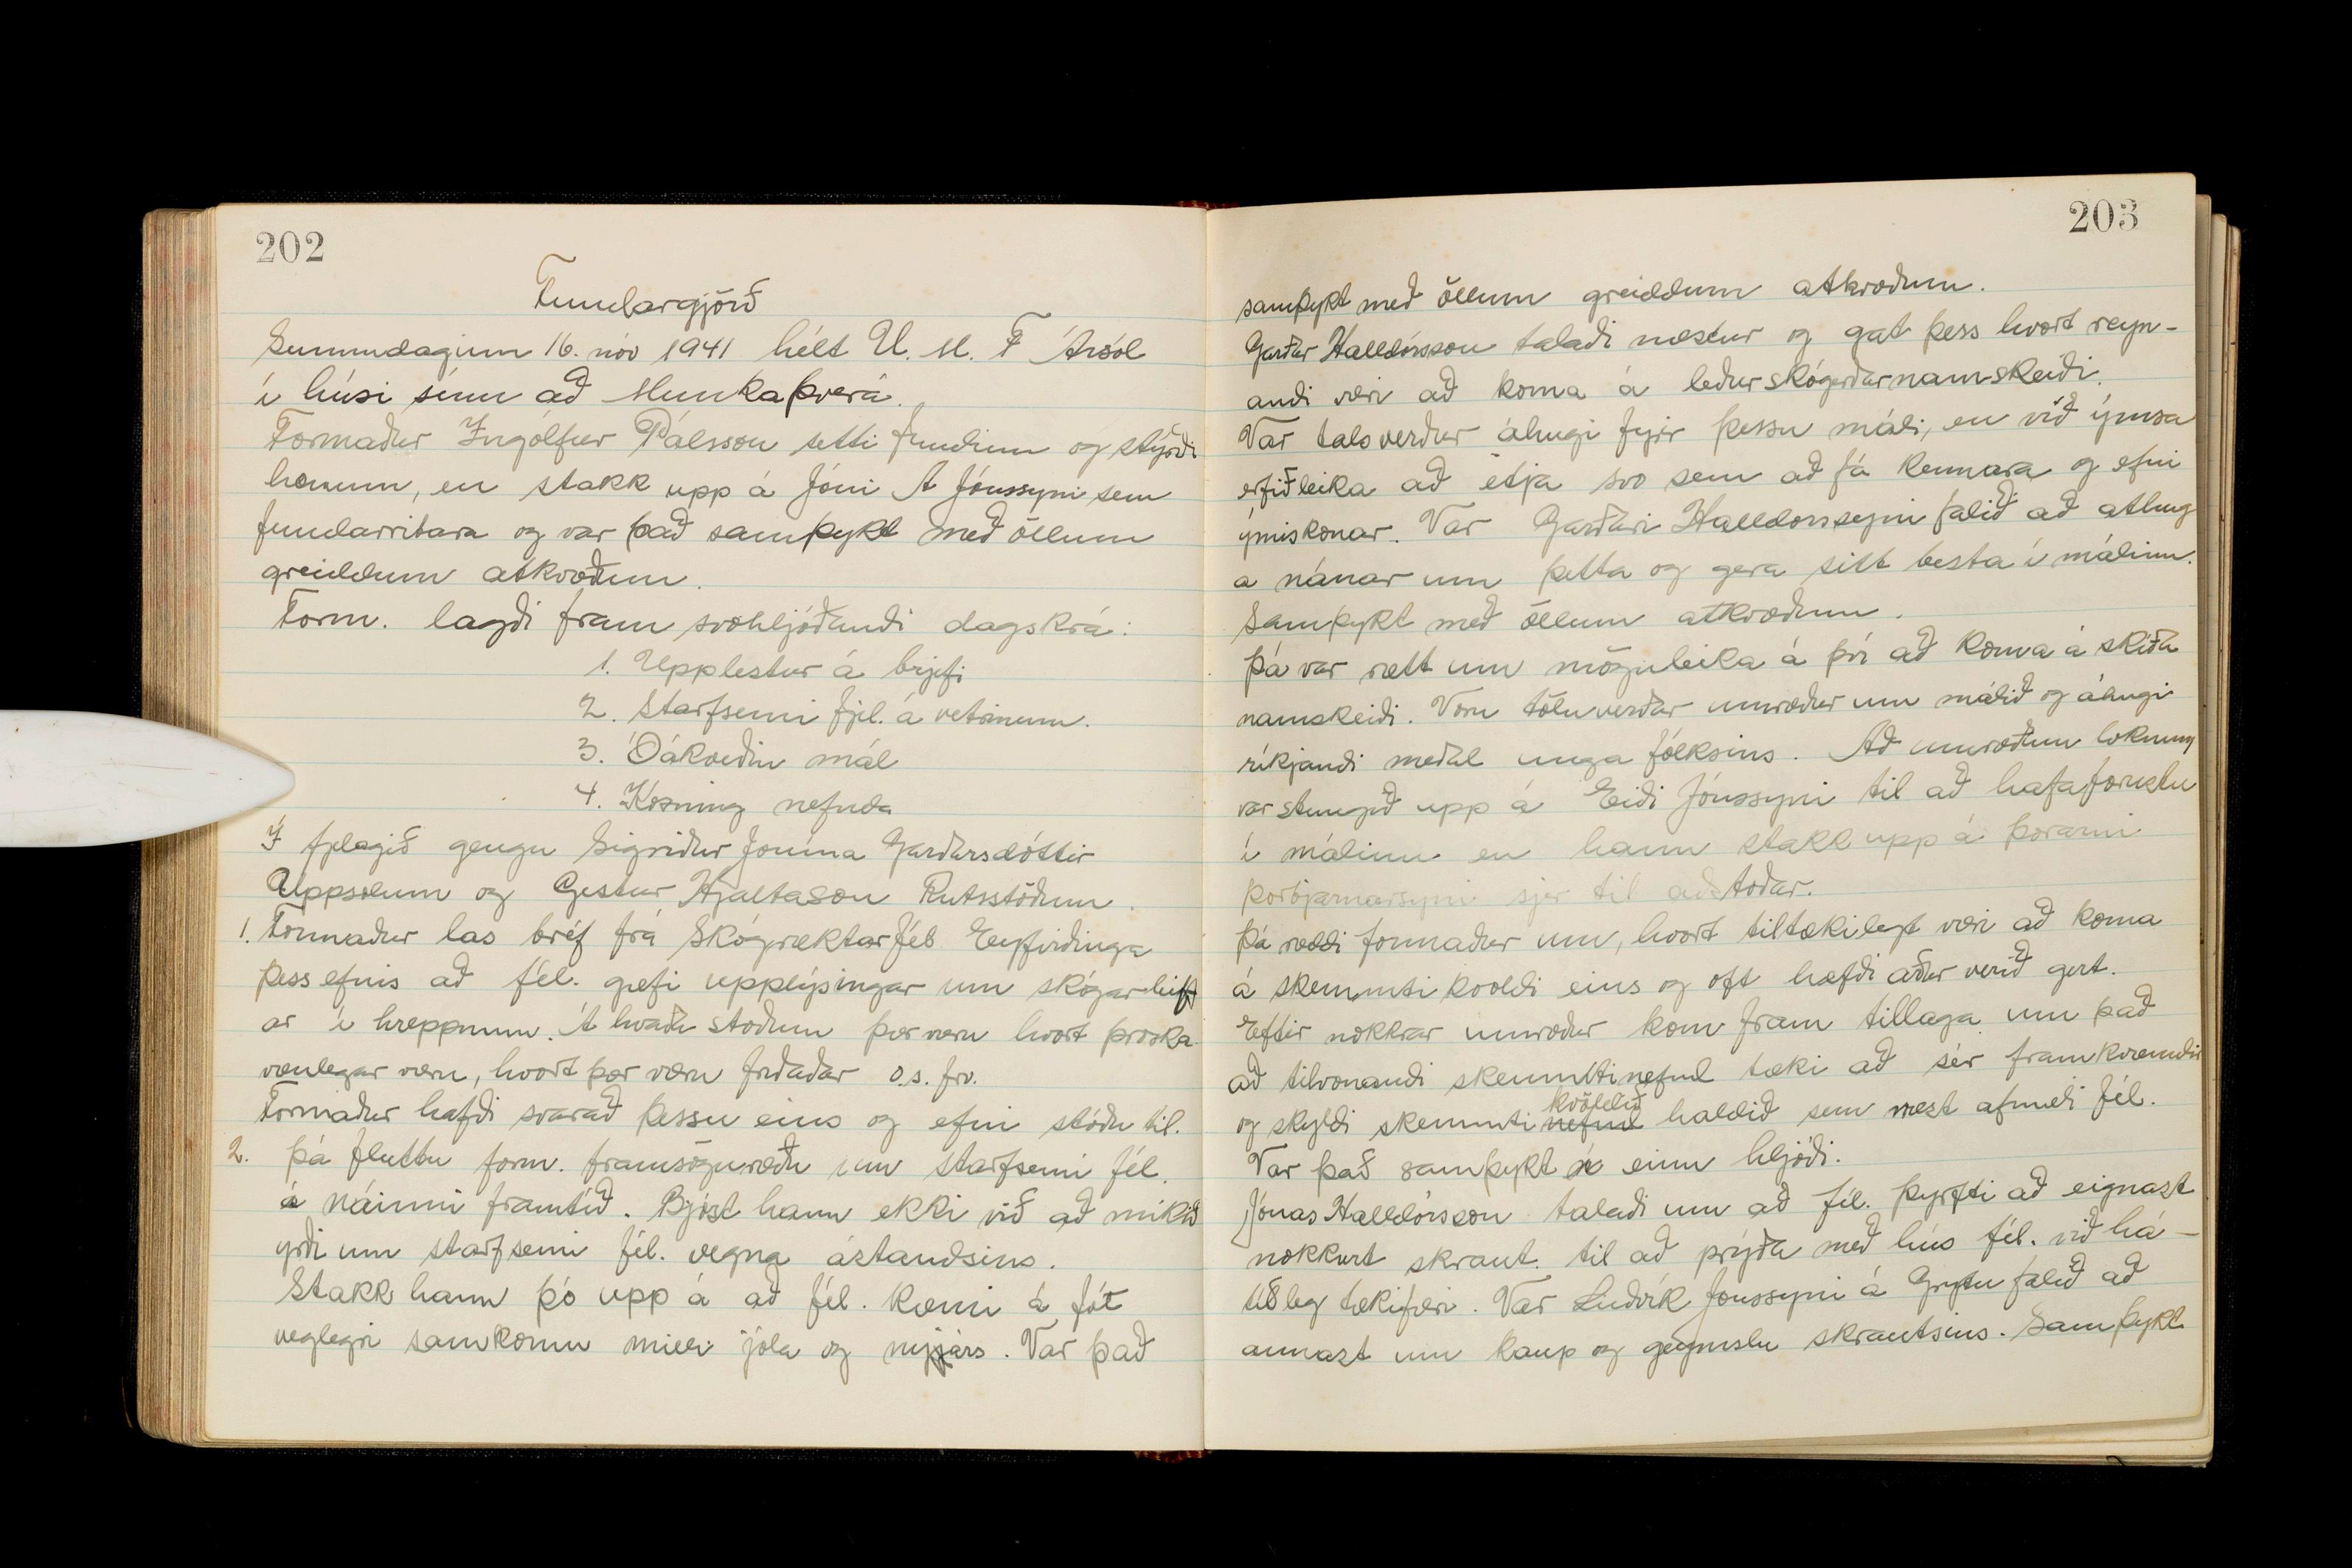 202
Fundargjörð
Sunnudaginn 16. nóv 1941 hélt U. M. F Ársól
í húsi sínu að Munkaþverá.
Formaður Ingólfur Pálsson setti fundinn og stýrði
honum, en stakk upp á Jóni A Jónssyni sem
fundarritara og var það samþykt með öllum
greiddum atkvæðum.
Form. lagði fram svohljóðandi dagskrá:
1. Upplestur á brjefi
2. Starfsemi fjel. á vetrinum.
3. Óákveðin mál
4. Kosning nefnda
Í fjelagið gengu Sigriður Jonína Garðarsdóttir
Uppsölum og Gestur Hjaltason Rutsstöðum.
1. Formaður las bréf frá Skógræktarfél Eyfirðinga
þess efnis að fél. gæfi upplýsingar um skógarleift
ar í hreppnum. Á hvaða stöðum þær væru hvort þroska
vænlegar væru, hvort þær væru friðaðar o.s. frv.
Formaður hafði svarað þessu eins og efni stóðu til.
2. Þá fluttu form. framsöguræðu um starfsemi fél.
á náinni framtíð. Bjóst hann ekki við að mikið
yrði um starfsemi fél. vegna ástandsins.
Stakk hann þó upp á að fél. kæmi á fót
veglegri samkomu milli jóla og nyjárs. Var það
203
samþykt með öllum greiddum atkvæðum.
Garðar Halldórsson talaði næstur og gat þess hvort reyn-
andi væri að koma á leðurskógerðarnamskeiði.
Var talsverður áhugi fyrir þessu máli, en við ýmsa
erfiðleika að etja svo sem að fá kennara og efni
ýmiskonar. Var Garðari Halldorssyni falið að athug
a nánar um þetta og gera sitt besta í málinu.
Samþykt með öllum atkvæðum.
Þá var rætt um möguleika á því að koma á skíða
namskeiði. Voru töluverðar umræður um málið og áhugi
ríkjandi meðal unga fólksins. Að umræðum loknum
var stungið upp á Eiði Jónssyni til að hafa forustu
í málinu en hann stakk upp á Þorarni
Þorbjarnarsyni sjer til aðstoðar.
Þá ræddi formaður um, hvort tiltækilegt væri að koma
á skemmtikvöldi eins og oft hefði áður verið gert.
Eftir nokkrar umræður kom fram tillaga um það
að tilvonandi skemmtinefnd tæki að sér framkvæmdir
og skyldi skemmti nefnd kvöldið haldið sem næst afmæli fél.
Var það samþykt í einu hljóði.
Jónas Halldórsson talaði um að fél. þyrfti að eignast
nokkurt skraut til að prýða með hús fél. við há-
tíðleg tækifæri. Var Ludvík Jonssyni á Grýtu falið að
annast um kaup og geymslu skrautsins. Samþykt